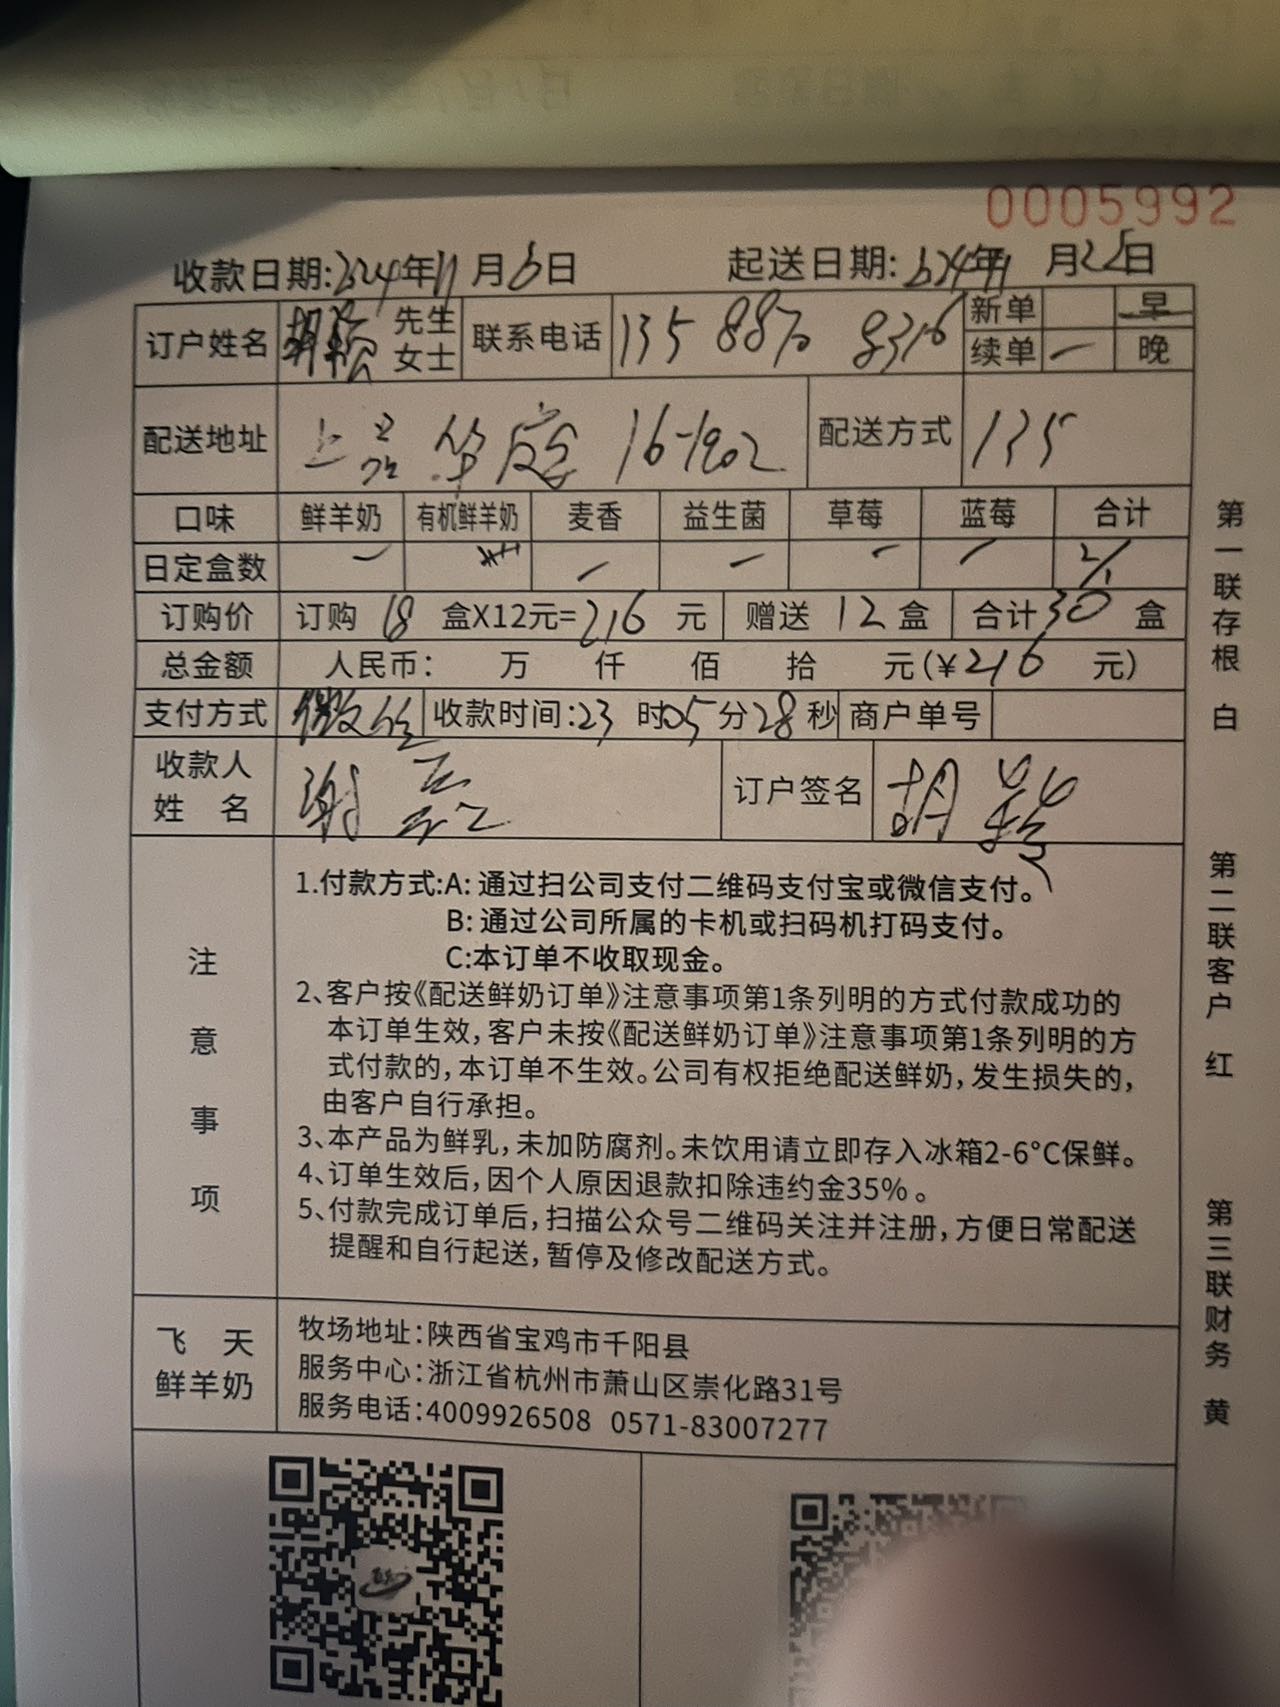 0005992
收款日期:2024年11月6日 起送日期:2024年11月25日
订户姓名 先生 女士 联系电话 135 8870 8316 新单 早
续单 一 晚
配送地址 上品华庭 16-1902 配送方式 135
口味 鲜羊奶 有机鲜羊奶 麦香 益生菌 草莓 蓝莓 合计
日定盒数
订购价 订购 18 盒X12元=216 元 赠送 12 盒 合计30 盒
总金额 人民币: 万 仟 佰 拾 元(¥216 元)
支付方式 收款时间:23 时05分28秒 商户单号
收款人 姓 名 谢 订户签名 胡
注意事项
1.付款方式:A:通过扫公司支付二维码支付宝或微信支付。
B:通过公司所属的卡机或扫码机打码支付。
C:本订单不收取现金。
2、客户按《配送鲜奶订单》注意事项第1条列明的方式付款成功的
本订单生效,客户未按《配送鲜奶订单》注意事项第1条列明的方
式付款的,本订单不生效。公司有权拒绝配送鲜奶,发生损失的,
由客户自行承担。
3、本产品为鲜乳,未加防腐剂。未饮用请立即存入冰箱2-6°C保鲜。
4、订单生效后,因个人原因退款扣除违约金35%。
5、付款完成订单后,扫描公众号二维码关注并注册,方便日常配送
提醒和自行起送,暂停及修改配送方式。
飞天
鲜羊奶
牧场地址:陕西省宝鸡市千阳县
服务中心:浙江省杭州市萧山区崇化路31号
服务电话:4009926508 0571-83007277
第一联存根 白
第二联客户 红
第三联财务 黄